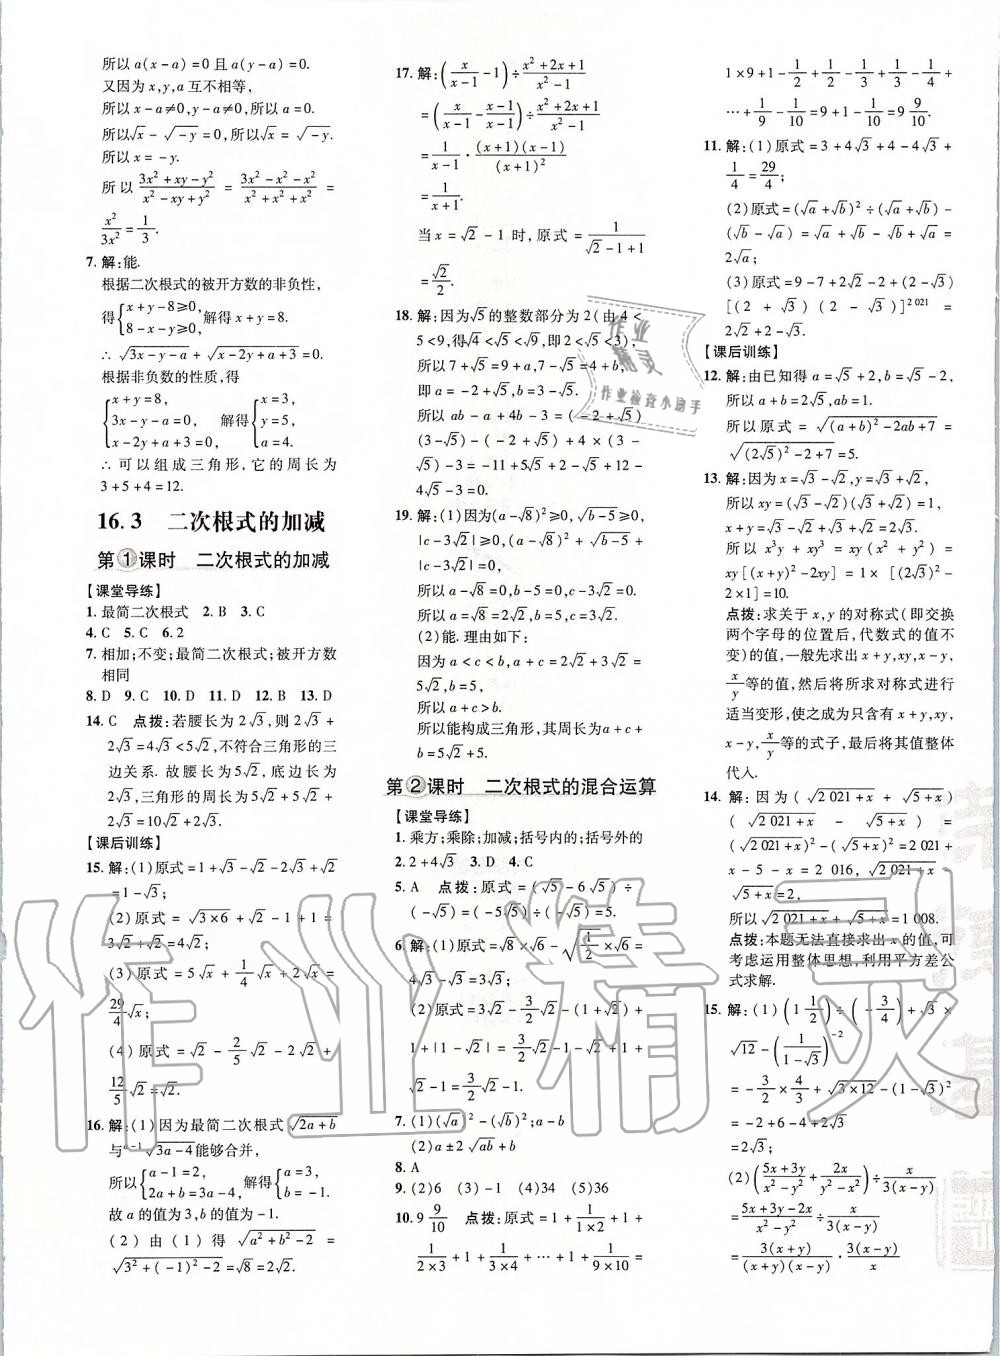 所以 a(x-a)=0 且 a(y-a)=0.
又因为 x,y,a 互不相等,
所以 x-a≠0,y-a≠0,所以 a=0.
所以√x-√(-y)=0,所以√x=√(-y).
所以 x=-y.
所以 (3x²+xy-y²)/(x²-xy+y²) = (3x²-x²-x²)/(x²+x²+x²) =
x²/3x² = 1/3.
7. 解:能.
根据二次根式的被开方数的非负性,
得{x+y-8≥0, 8-x-y≥0, 解得 x+y=8.
∴ √(3x-y-a)+√(x-2y+a+3)=0.
根据非负数的性质,得
{x+y=8, 3x-y-a=0, x-2y+a+3=0, 解得{x=3, y=5, a=4.
∴ 可以组成三角形,它的周长为
3+5+4=12.
16.3 二次根式的加减
第1课时 二次根式的加减
【课堂导练】
1. 最简二次根式 2. B 3. C
4. C 5. C 6. 2
7. 相加;不变;最简二次根式;被开方数
相同
8. D 9. C 10. D 11. D 12. B 13. D
14. C 点拨:若腰长为 2√3,则 2√3+
2√3=4√3<5√2,不符合三角形的三
边关系.故腰长为 5√2,底边长为
2√3,此时三角形的周长为 5√2+5√2+
2√3=10√2+2√3.
【课后训练】
15. 解:(1)原式=1+√3-√2-2√3+√2
=1-√3;
(2)原式=√(3×6)+√2-1+1=
3√2+√2=4√2;
(3)原式=5√x+1/4√x+2√x=
29/4√x;
(4)原式=√2-2/5√2-2√2+
12/5√2=√2.
16. 解:(1)因为最简二次根式√(2a+b)
与 ᵃ⁻¹√(3a-4)能够合并,
所以{a-1=2, 2a+b=3a-4, 解得{a=3, b=-1.
故 a 的值为 3,b 的值为 -1.
(2)由(1)得 √(a²+b²-2)=
√(3²+(-1)²-2)=√8=2√2.
17. 解:(x/(x-1)-1)÷(x²+2x+1)/(x²-1)
=(x/(x-1)-(x-1)/(x-1))÷(x²+2x+1)/(x²-1)
=1/(x-1)·(x+1)(x-1)/(x+1)²
=1/(x+1).
当 x=√2-1 时,原式=1/(√2-1+1)
=√2/2.
18. 解:因为√5的整数部分为 2(由 4<
5<9,得√4<√5<√9,即2<√5<3),
所以 7+√5=9+a,7-√5=4+b,
即 a=-2+√5,b=3-√5.
所以 ab-a+4b-3=(-2+√5)
(3-√5)-(-2+√5)+4×(3-
√5)-3=-11+5√5+2-√5+12-
4√5-3=0.
19. 解:(1)因为(a-√8)²≥0,√(b-5)≥0,
|c-3√2|≥0,(a-√8)²+√(b-5)+
|c-3√2|=0,
所以 a-√8=0,b-5=0,c-3√2=0.
所以 a=√8=2√2,b=5,c=3√2.
(2)能.理由如下:
因为 a<c<b,a+c=2√2+3√2=
5√2>5,
所以 a+c>b.
所以能构成三角形,其周长为 a+c+
b=5√2+5.
第2课时 二次根式的混合运算
【课堂导练】
1. 乘方;乘除;加减;括号内的;括号外的
2. 2+4√3 3. D 4. C
5. A 点拨:原式=(√5-6√5)÷
(-√5)=(-5√5)÷(-√5)=5.
6. 解:(1)原式=√8×√6-√(1/2)×√6=
4√3-√3=3√3;
(2)原式=3√2-3/2√2-(1+√2)+
1+|1-√2|=3√2-3/2√2-1-√2+1+
√2-1=3/2√2-1.
7. (1)(√a)²-(√b)²;a-b
(2)a±2√ab+b
8. A
9. (2)6 (3)-1 (4)34 (5)36
10. 9 9/10 点拨:原式=1+1/(1×2)+1+
1/(2×3)+1+1/(3×4)+…+1+1/(9×10)=
1×9+1-1/2+1/2-1/3+1/3-1/4+
…+1/9-1/10=9+1-1/10=9 9/10.
11. 解:(1)原式=3+4√3+4-4√3+
1/4=29/4;
(2)原式=(√a+√b)²÷(√a+√b)-
(√b-√a)=√a+√b-√b+√a=
2√a;
(3)原式=9-7+2√2+(2-√3)
[(2+√3)(2-√3)]²⁰²¹=
2+2√2+2-√3=4+2√2-√3.
【课后训练】
12. 解:由已知得 a=√5+2,b=√5-2,
所以 a+b=2√5,ab=1.
所以原式=√((a+b)²-2ab+7)=
√((2√5)²-2+7)=5.
13. 解:因为 x=√3-√2,y=√3+√2,
所以 xy=(√3-√2)(√3+√2)=1,
x+y=√3-√2+√3+√2=2√3.
所以 x³y+xy³=xy(x²+y²)=
xy[(x+y)²-2xy]=1×[(2√3)²-
2×1]=10.
点拨:求关于 x,y 的对称式(即交换
两个字母的位置后,代数式的值不
变)的值,一般先求出 x+y,xy,x-y,
x/y等的值,然后将所求对称式进行
适当变形,使之成为只含有 x+y,xy,
x-y,x/y等的式子,最后将其值整体
代入.
14. 解:因为(√(2 021+x)+√(5+x))
(√(2 021+x)-√(5+x))=
(√(2 021+x))²-(√(5+x))²=2 021+
x-5-x=2 016,√(2 021+x)-
√(5+x)=2,
所以√(2 021+x)+√(5+x)=1 008.
点拨:本题无法直接求出 x 的值,可
考虑运用整体思想,利用平方差公
式求解.
15. 解:(1)(1 1/2)÷(-3/4)+√3×
√12-(1/(1-√3))⁻²
=-3/2×4/3+√(3×12)-(1-√3)²
=-2+6-4+2√3
=2√3;
(2)((5x+3y)/(x²-y²)+2x/(y²-x²))÷x/(3(x-y))
=(5x+3y-2x)/(x²-y²)÷x/(3(x-y))
=3(x+y)/((x+y)(x-y))·3(x-y)/x
作业精灵
作业检查小助手
作业精灵